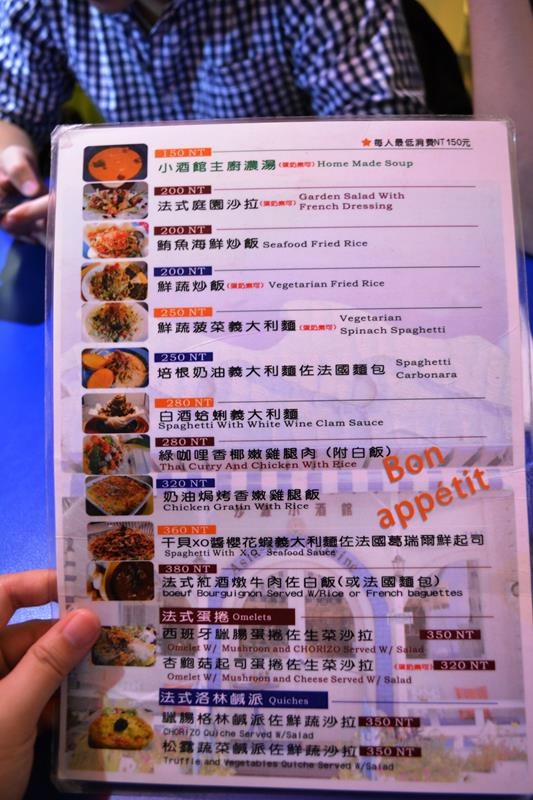 ★每人最低消費NT150元
150 NT
小酒館主廚濃湯(蛋奶素可) Home Made Soup
200 NT
法式庭園沙拉(蛋奶素可) Garden Salad With
French Dressing
200 NT
鮪魚海鮮炒飯 Seafood Fried Rice
200 NT
鮮蔬炒飯(蛋奶素可) Vegetarian Fried Rice
250 NT
鮮蔬菠菜義大利麵(蛋奶素可) Vegetarian
Spinach Spaghetti
250 NT
培根奶油義大利麵佐法國麵包 Spaghetti
Carbonara
280 NT
白酒蛤蜊義大利麵
Spaghetti With White Wine Clam Sauce
280 NT
綠咖哩香椰嫩雞腿肉（附白飯）
Thai Curry And Chicken With Rice
Bon
appétit
320 NT
奶油焗烤香嫩雞腿飯
Chicken Gratin With Rice
360 NT
干貝XO醬櫻花蝦義大利麵佐法國葛瑞爾鮮起司
Spaghetti With X.O. Seafood Sauce
380 NT
法式紅酒燉牛肉佐白飯(或法國麵包)
boeuf Bourguignon Served W/Rice or French baguettes
法式蛋捲 Omelets
西班牙臘腸蛋捲佐生菜沙拉 350 NT
Omelet W/ Mushroon and CHORIZO Served W/ Salad
杏鮑菇起司蛋捲佐生菜沙拉 (蛋奶素可) 320 NT
Omelet W/ Mushroon and Cheese Served W/ Salad
法式洛林鹹派 Quiches
臘腸格林鹹派佐鮮蔬沙拉 350 NT
CHORIZO Quiche Served W/Salad
松露蔬菜鹹派佐鮮蔬沙拉 350 NT
Truffle and Vegetables Quiche Served W/Salad